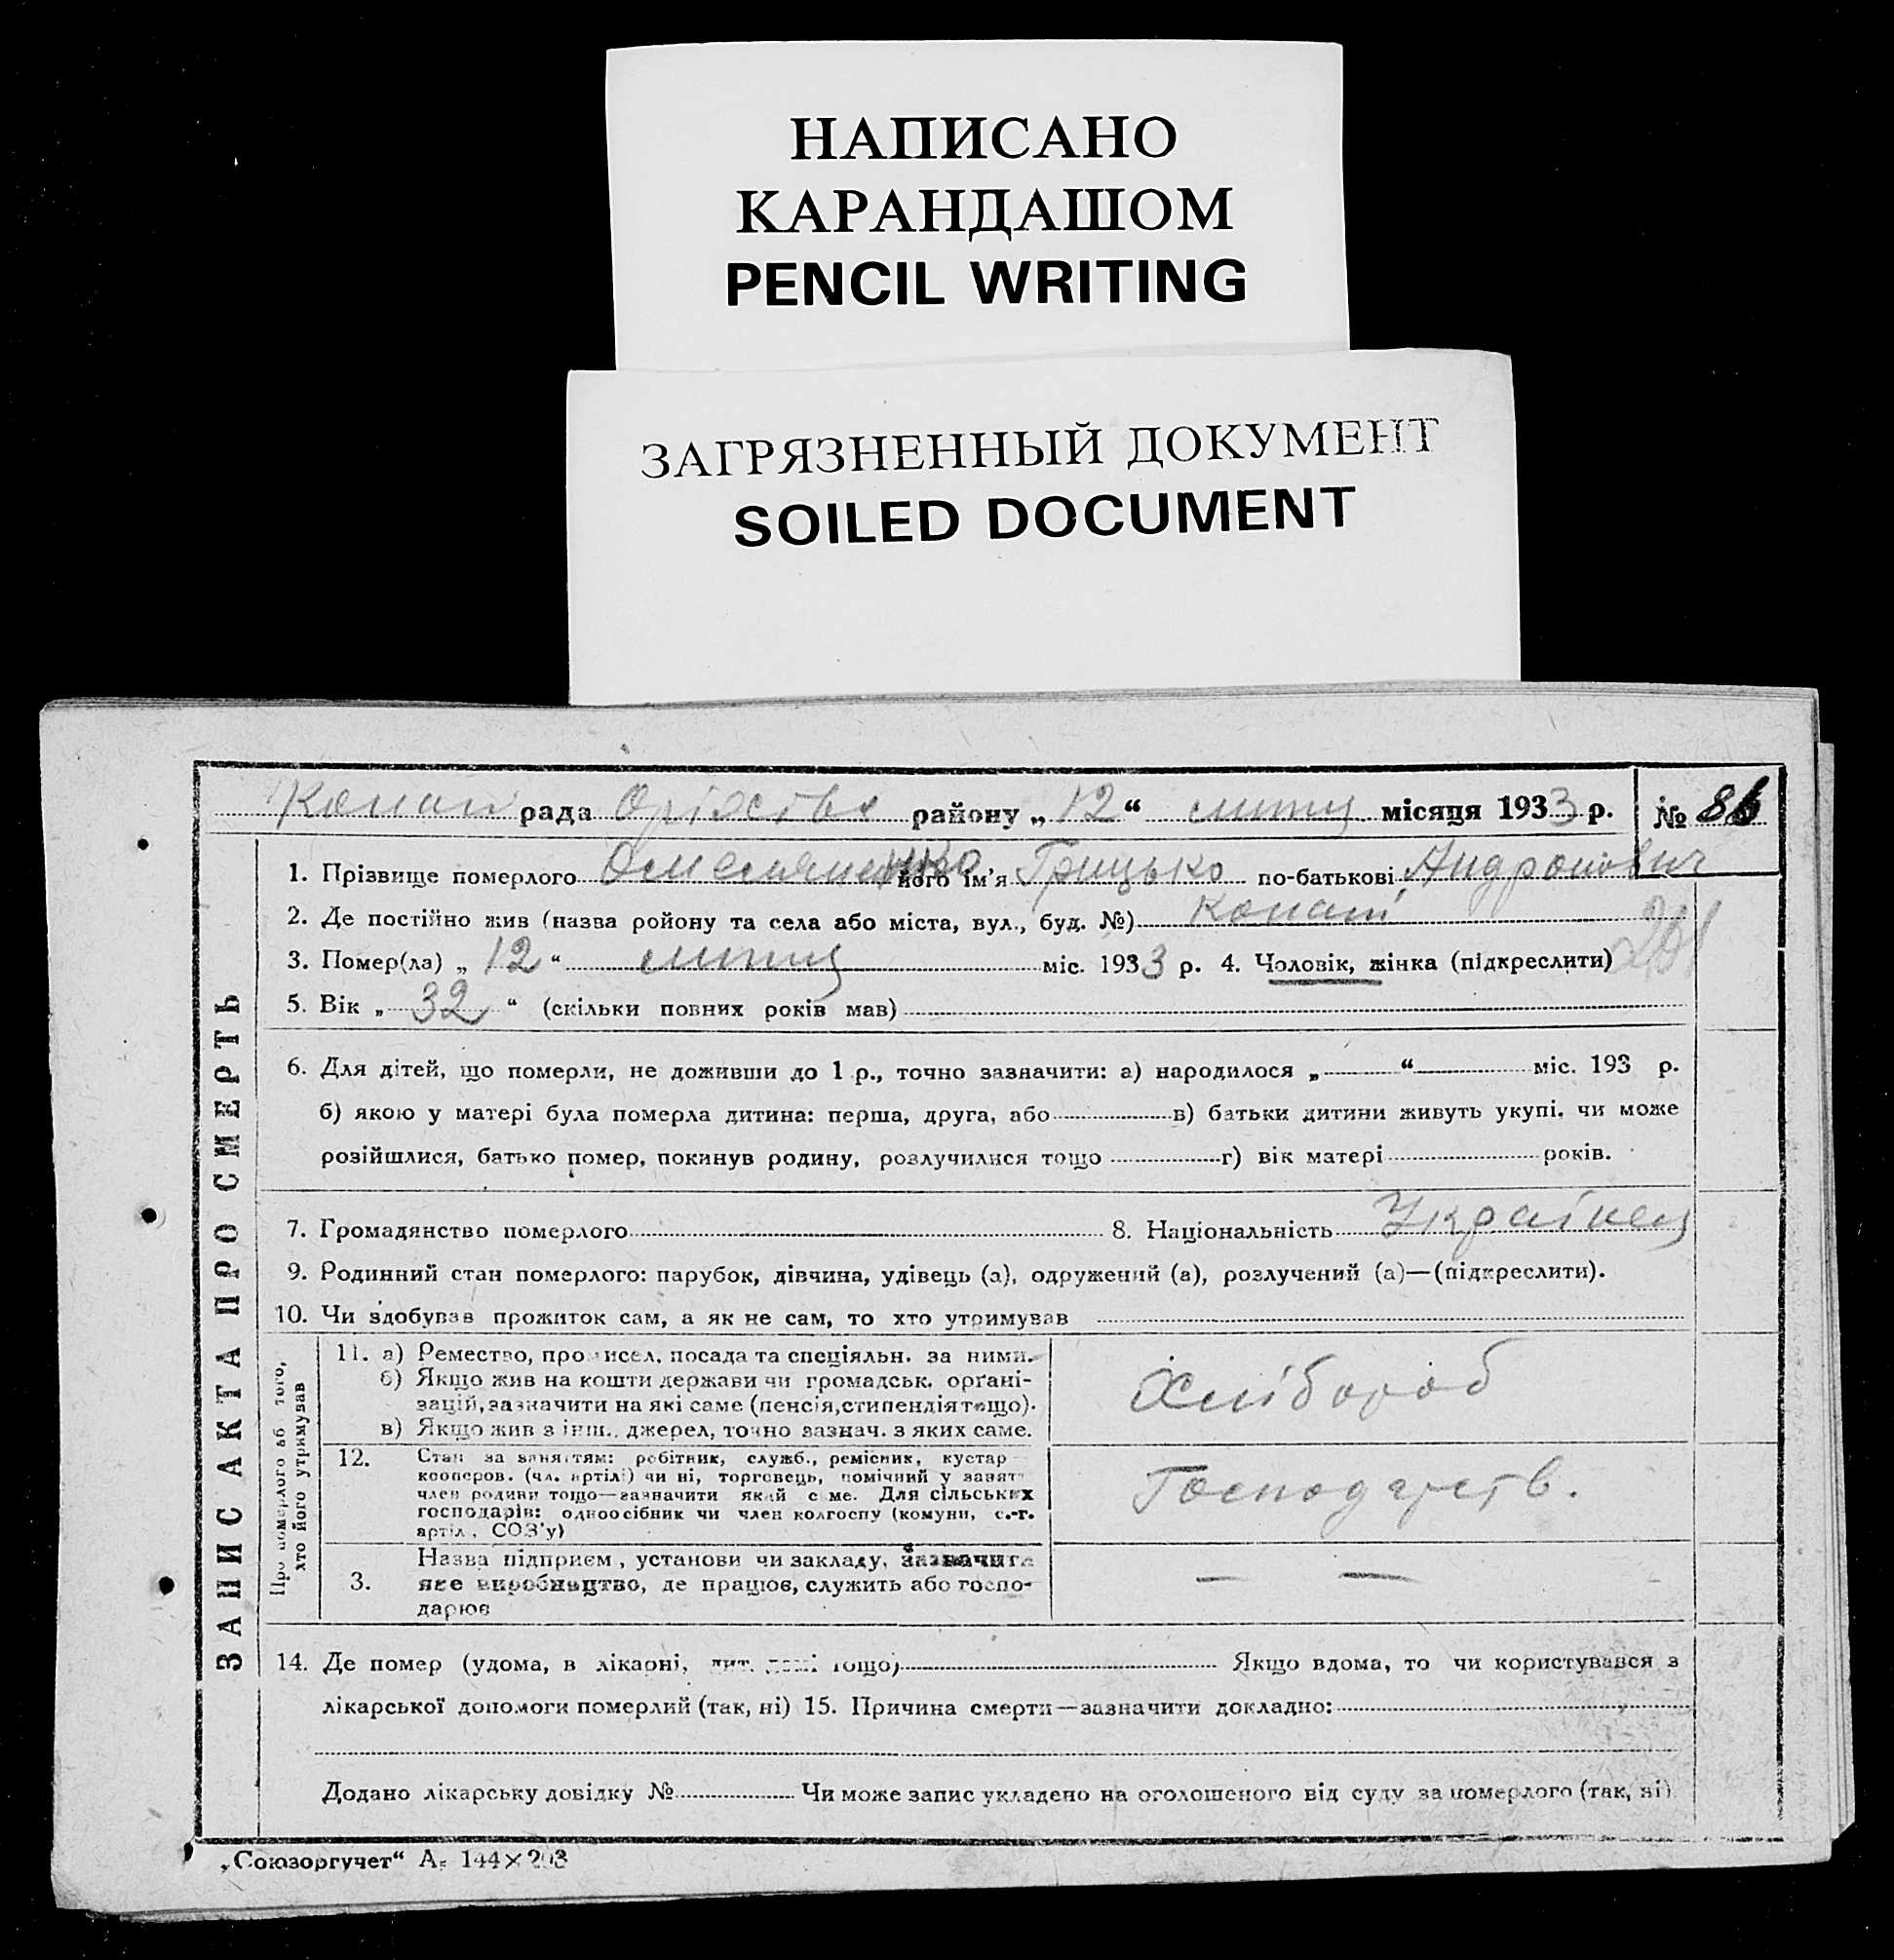 НАПИСАНО
КАРАНДАШОМ
PENCIL WRITING
ЗАГРЯЗНЕННЫЙ ДОКУМЕНТ
SOILED DOCUMENT
Копани рада Оріхівськ району „12“ липця місяця 1933 р. № 86
1. Прізвище померлого Омельяненко його ім'я Грицько по-батькові Андронович
2. Де постійно жив (назва ройону та села або міста, вул., буд. №) Копані
3. Помер(ла) „12“ липця міс. 1933 р. 4. Чоловік, жінка (підкреслити)
5. Вік „32“ (скільки повних років мав)
6. Для дітей, що померли, не доживши до 1 р., точно зазначити: а) народилося „ “ міс. 193 р.
б) якою у матері була померла дитина: перша, друга, або в) батьки дитини живуть укупі, чи може
розійшлися, батько помер, покинув родину, розлучилися тощо г) вік матері років.
7. Громадянство померлого 8. Національність Українец
9. Родинний стан померлого: парубок, дівчина, удівець (а), одружений (а), розлучений (а)—(підкреслити).
10. Чи здобував прожиток сам, а як не сам, то хто утримував
ЗАПИС АКТА ПРО СМЕРТЬ
Про померлого аб того,
хто його утримував
11. а) Ремество, промисел, посада та спеціяльн. за ними.
б) Якщо жив на кошти держави чи громадськ. органі-
зацій, зазначити на які саме (пенсія, стипендія тощо).
в) Якщо жив з інш., джерел, точно зазнач. з яких саме.
Хлібороб
12. Стан за заняттям: робітник, служб., ремісник, кустар
кооперов. (чл. артілі) чи ні, торговець, помічний у занят
член родини тощо—зазначити який саме. Для сільських
господарів: одноосібник чи член колгоспу (комуни, с.-г.
артіл, СОЗ'у)
Господарств.
3. Назва підприєм, установи чи закладу, зазначити
яке виробництво, де працює, служить або госпо-
дарює
— —
14. Де помер (удома, в лікарні, дит. домі тощо) Якщо вдома, то чи користувався з
лікарської допомоги померлий (так, ні) 15. Причина смерти—зазначити докладно:
Додано лікарську довідку № Чи може запис укладено на оголошеного від суду за померлого (так, ні)
„Союзоргучет“ А₅ 144×203